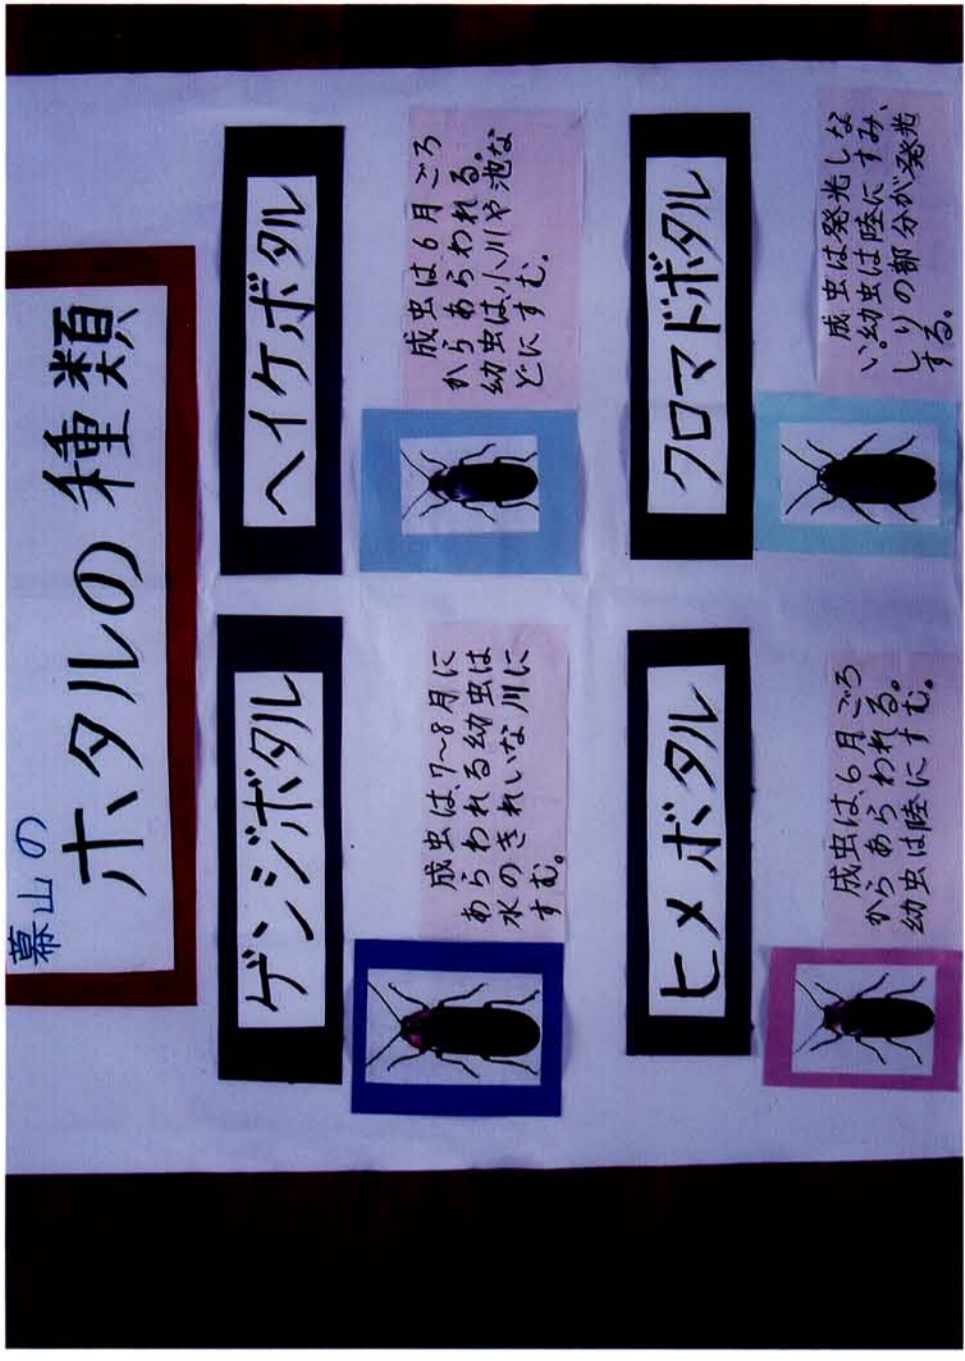 幕山の
ホタルの種類
ゲンジボタル
成虫は、7~8月に
あらわれる幼虫は
水のきれいな川に
すむ。
ヘイケボタル
成虫は6月ごろ
からあらわれる。
幼虫は、小川や池な
どにすむ。
ヒメボタル
成虫は、6月ごろ
からあらわれる。
幼虫は陸にすむ。
クロマドボタル
成虫は発光しな
い。幼虫は陸にすみ、
しりの部分が発光
する。